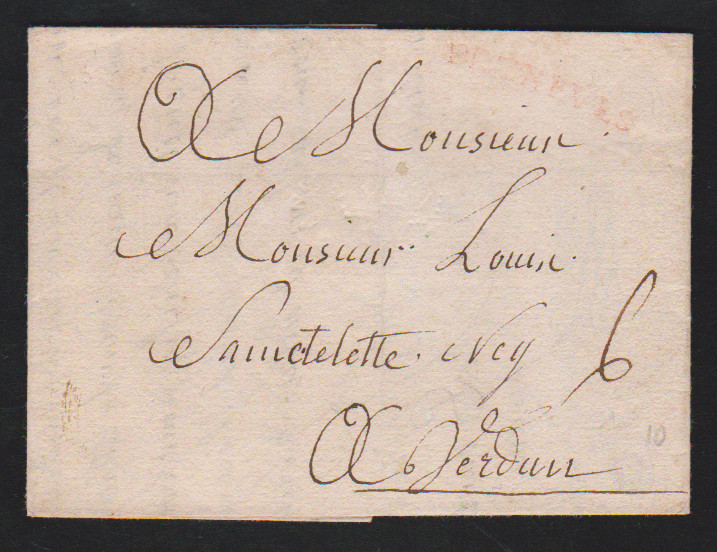 A Monsieur
Monsieur Louis
Sainctelette Neg
6
A Verdun
10